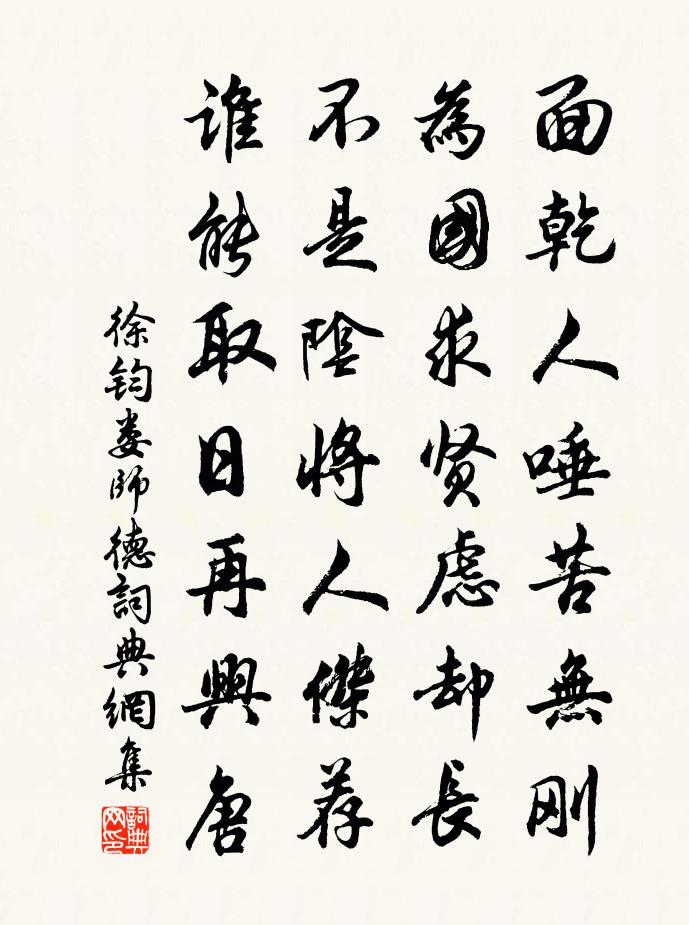 面乾人唾苦無刚
為國求贤慮却長
不是陰将人傑荐
誰能取日再興唐
徐钧娄師德詞典網集
詞典网印